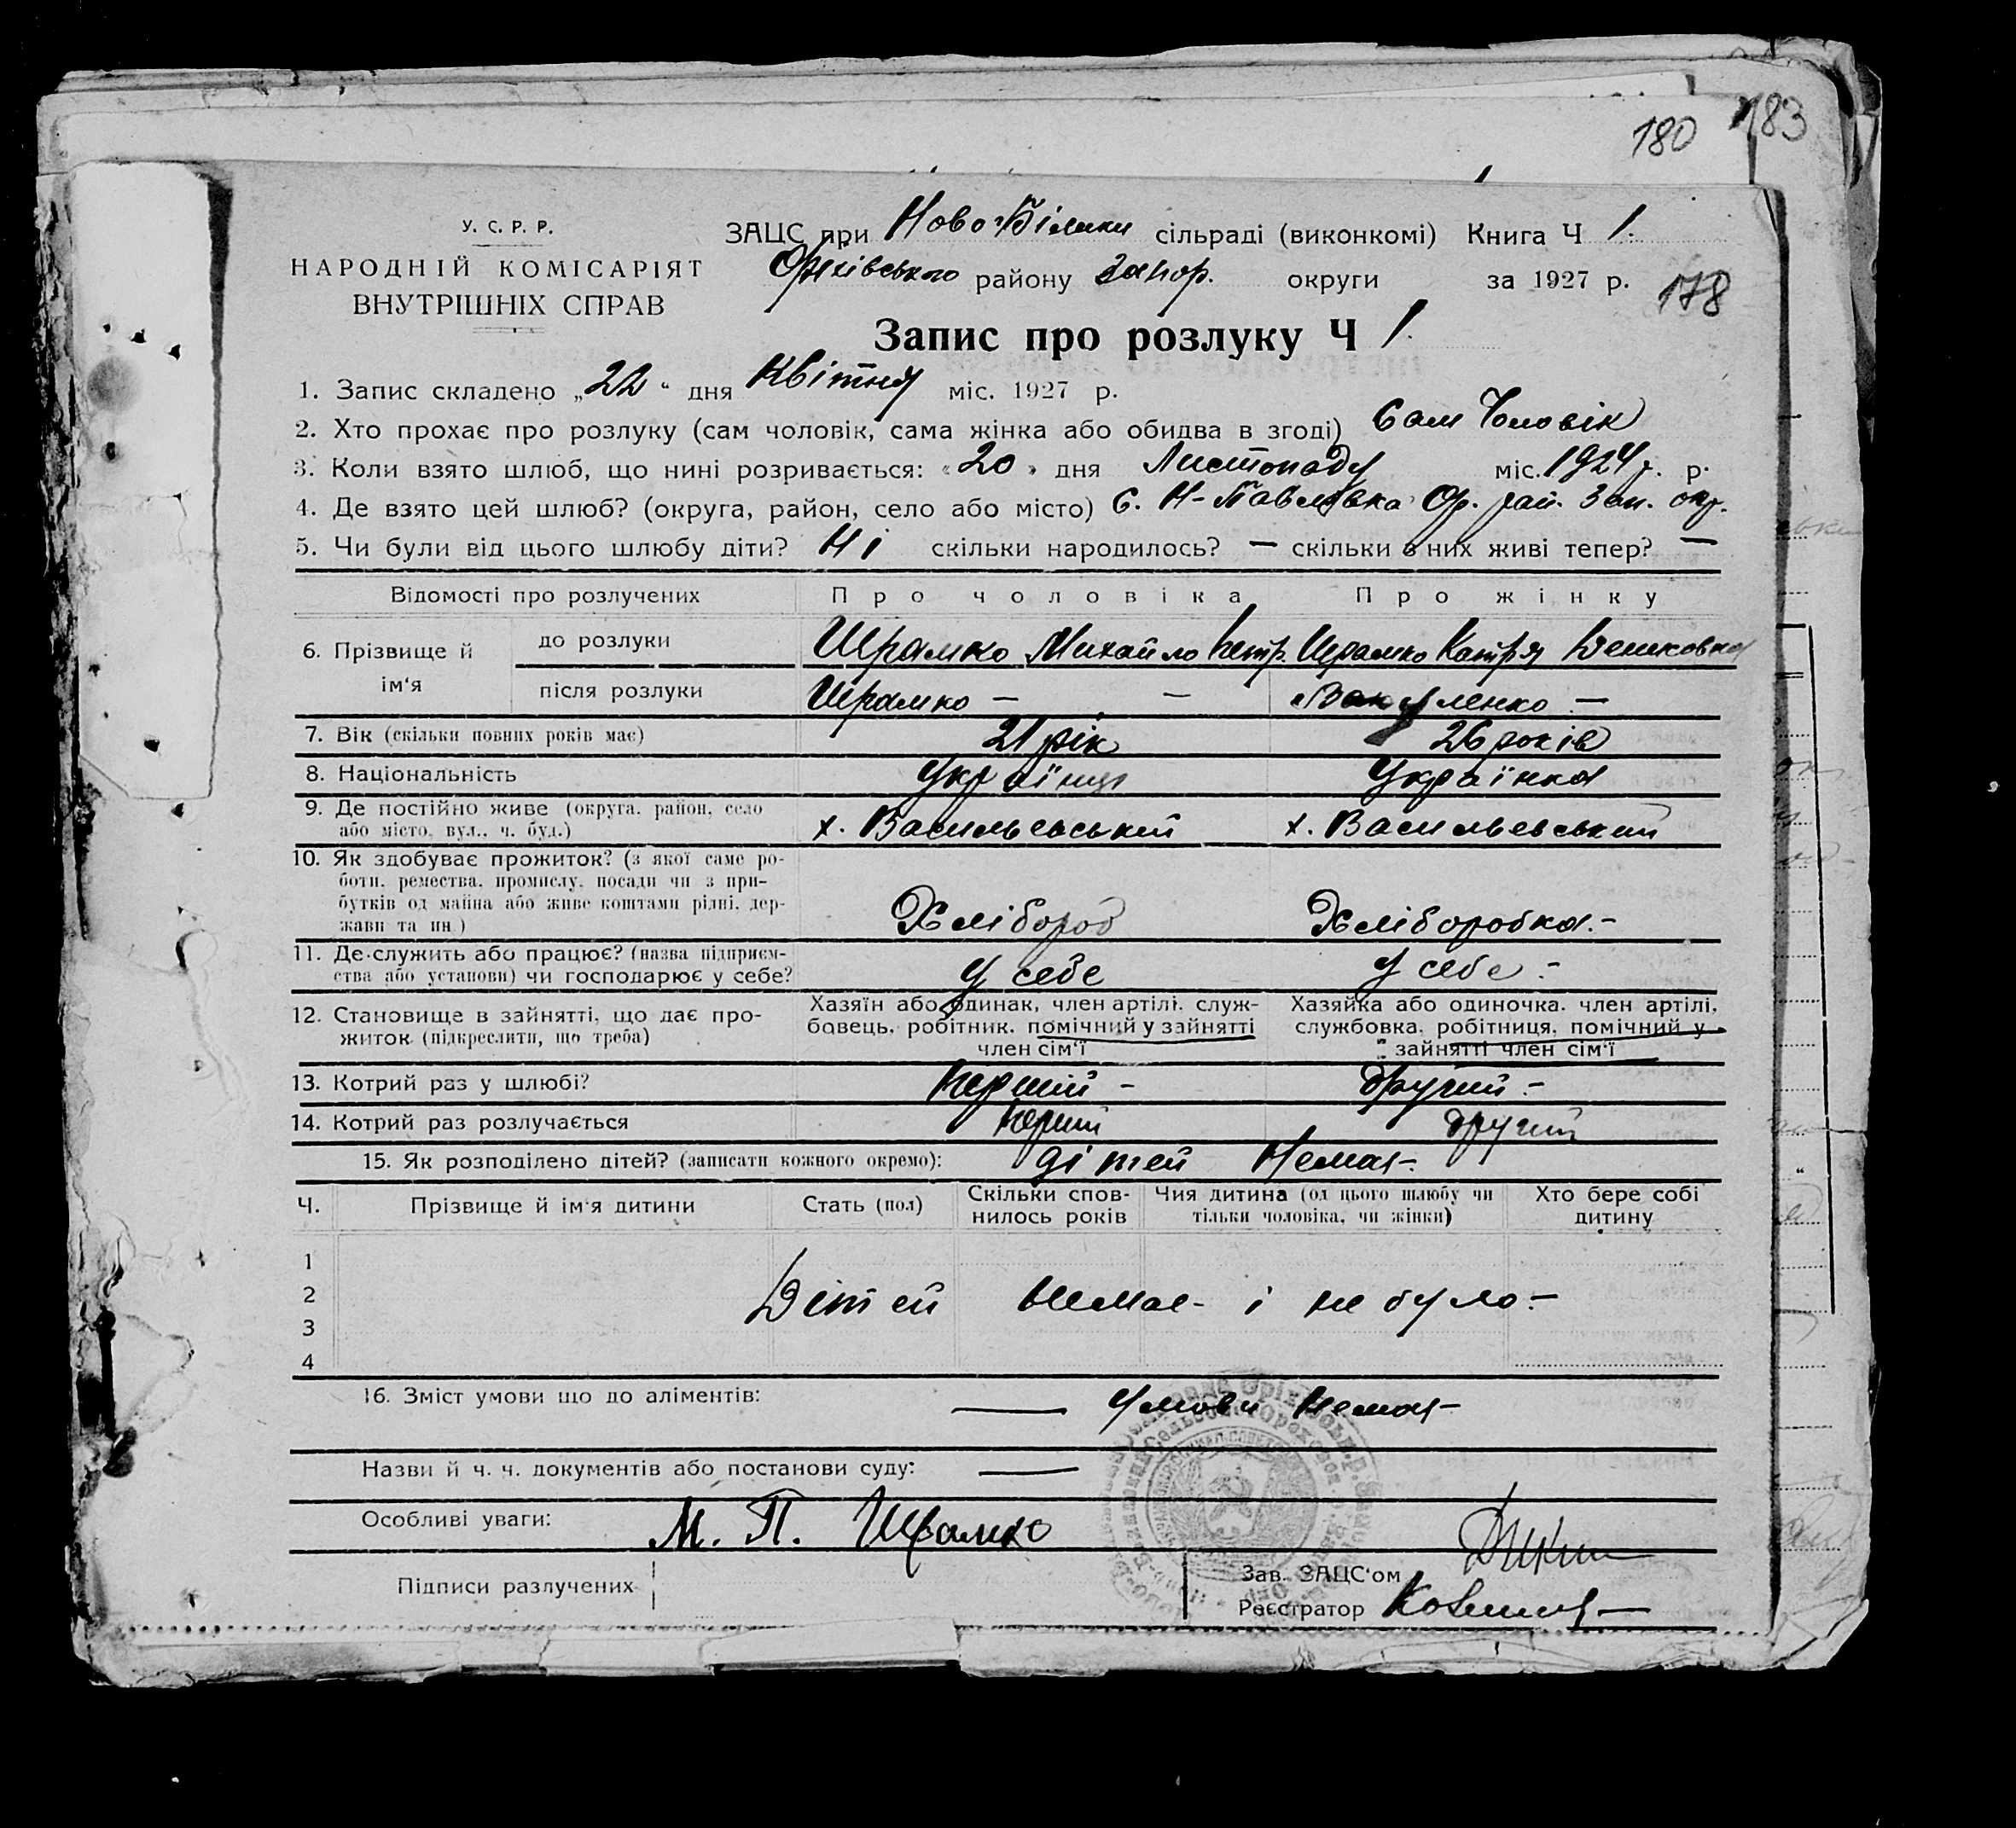 180 183
У. С. Р. Р.
НАРОДНІЙ КОМІСАРІЯТ
ВНУТРІШНІХ СПРАВ
ЗАЦС при Ново-Білики сільраді (виконкомі) Книга Ч 1.
Оріхівського району Запор. округи за 1927 р. 178
Запис про розлуку Ч 1.
1. Запис складено „22“ дня Квітня міс. 1927 р.
2. Хто прохає про розлуку (сам чоловік, сама жінка або обидва в згоді) Сам Чоловік
3. Коли взято шлюб, що нині розривається: «20» дня Листопаду міс. 1924 р. р.
4. Де взято цей шлюб? (округа, район, село або місто) С. Н-Павлівка Ор. рай. Зап. окр.
5. Чи були від цього шлюбу діти? Ні скільки народилось? — скільки з них живі тепер? —
Відомості про розлучених Про чоловіка Про жінку
6. Прізвище й ім'я до розлуки Шрамко Михайло Петр. Шрамко Катря
після розлуки Шрамко — —
7. Вік (скільки повних років має) 21 рік 26 років
8. Національність Українця Українка
9. Де постійно живе (округа, район, село або місто, вул., ч. буд.) х. Васильевський х. Васильевський
10. Як здобуває прожиток? (з якої саме ро-
боти, ремества, промислу, посади чи з при-
бутків од майна або живе коштами рідні, дер-
жави та ин.) Хлібороб Хліборобка.-
11. Де служить або працює? (назва підприєм-
ства або установи) чи господарює у себе? У себе У себе.-
12. Становище в зайнятті, що дає про-
житок (підкреслити, що треба)
Хазяїн або одинак, член артілі, служ-
бовець, робітник, помічний у зайнятті
член сім'ї
Хазяйка або одиночка, член артілі,
службовка, робітниця, помічний у
зайнятті член сім'ї
13. Котрий раз у шлюбі? Перший - другий.-
14. Котрий раз розлучається Перший другий
15. Як розподілено дітей? (записати кожного окремо): Дітей Немає.
Ч. Прізвище й ім'я дитини Стать (пол) Скільки спов-
нилось років Чия дитина (од цього шлюбу чи
тільки чоловіка, чи жінки) Хто бере собі
дитину
1
2 Дітей немає - і не було.-
3
4
16. Зміст умови що до аліментів: — Умови Немає-
Назви й ч. ч. документів або постанови суду: —
Особливі уваги: М. П. Шрамко
Підписи разлучених
Зав. ЗАЦС'ом
Реєстратор